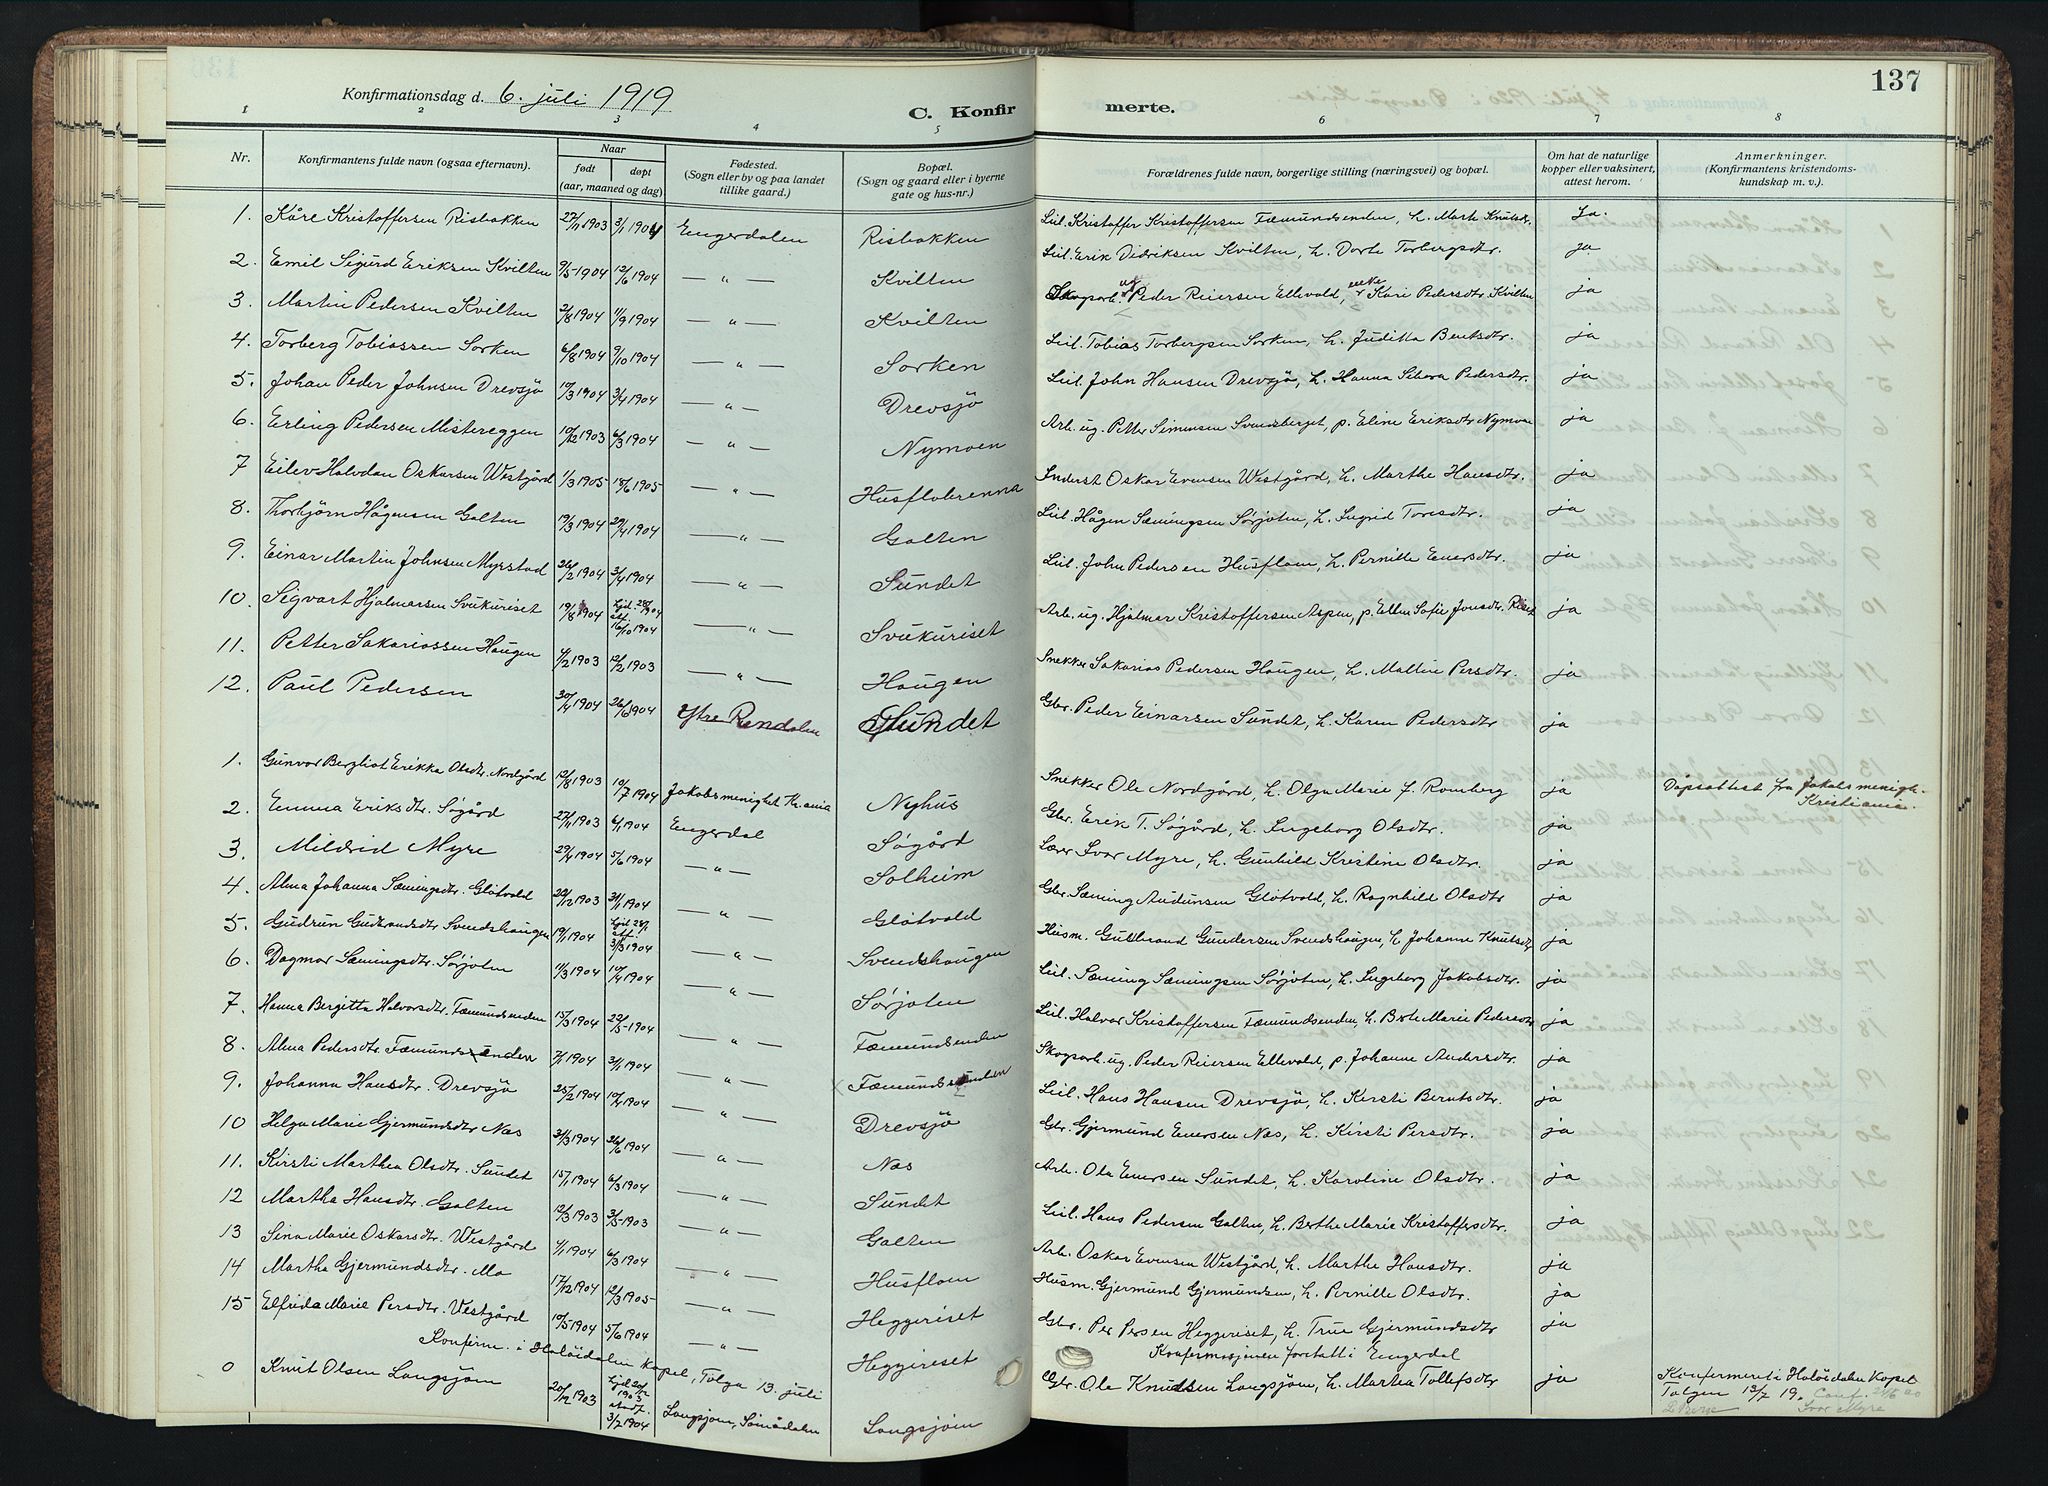 137
Konfirmationsdag d. 6. juli 1919
C. Konfirmerte.
1 2 3 4 5 6 7 8
Nr. Konfirmantens fulde navn (ogsaa efternavn). Naar født døpt (aar, maaned og dag) Fødested. (Sogn eller by og paa landet tillike gaard.) Bopæl. (Sogn og gaard eller i byerne gate og hus-nr.) Forældrenes fulde navn, borgerlige stilling (næringsvei) og bopæl. Om hat de naturlige kopper eller vaksinert, attest herom. Anmerkninger. (Konfirmantens kristendomskundskap m. v.).
1. Kåre Kristoffersen Risbakken 27/11 1903 3/1 1904 Engerdalen Risbakken Leil. Kristoffer Kristoffersen Fæmundsenden, h. Marte Knutsdtr. Ja.
2. Emil Sigurd Eriksen Kvilten 9/5-1904 12/6 1904 — " — Kvilten Leil. Erik Didriksen Kvilten, h. Dorte Torbergsdtr. ja
3. Martin Pedersen Kvilten 2/8 1904 11/9 1904 — " — Kvilten Skogsarb. ug Peder Reiersen Ellevold, enke Kari Pedersdtr. Kvilten ja
4. Torberg Tobiassen Sorken 6/8 1904 9/10 1904 — " — Sorken Leil. Tobias Torbergsen Sorken, h. Juditta Bentsdtr. ja
5. Johan Peder Johnsen Drevsjö 10/3 1904 3/4 1904 — " — Drevsjö Leil. John Hansen Drevsjö, h. Hanna Sibera Pedersdtr. ja
6. Erling Pedersen Mistereggen 10/12 1903 6/3 1904 — " — Nymoen Arb. ug. Petter Simensen Svendsberget, p. Eline Eriksdtr Nymoen ja
7 Eilev Halvdan Oskarsen Westgård 1/3 1905 18/6 1905 — " — Husflobrenna Inderst Oskar Evensen Westgård, h. Marthe Hansdtr. ja
8. Thorbjörn Hågensen Galten 19/3 1904 24/4 1904 — " — Galten Leil. Hågen Sæmingsen Sørjoten, h. Ingrid Toresdtr. ja
9. Einar Martin Johnsen Myrstad 26/2 1904 3/4 1904 — " — Sundet Leil. John Pedersen Husflom, h. Pernille Enersdtr. ja
10. Sigvart Hjalmarsen Svukuriset 19/8 1904 hjd. 28/8 1904 stf. 16/10 1904 — " — Svukuriset Arb. ug. Hjalmar Kristoffersen Aspen, p. Ellen Sofie Jonsdtr. Riset ja
11. Petter Sakariassen Haugen 4/2 1903 12/2 1903 — " — Haugen Snekker Sakarias Pedersen Haugen, h. Malline Persdtr. ja
12. Paul Pedersen 30/4 1904 26/6 1904 Ytre Rendalen Sundet Gbr. Peder Einarsen Sundet, h. Karen Pedersdtr ja
1. Gunvor Bergliot Erikka Olsdtr. Nordgård 12/8 1903 10/7 1904 Jakobsmenighet Kr.ania Nyhus Snekker Ole Nordgård, h. Olga Marie f. Romberg ja Dåpsattest fra Jakobs menigh. Kristiania.
2. Emma Eriksdtr. Søgård 27/11 1903 6/1 1904 Engerdal Søgård Gbr. Erik T. Søgård, h. Ingeborg Olsdtr. ja
3. Mildrid Myre 29/4 1904 5/6 1904 — " — Solheim Lærer Ivar Myre, h. Gunhild Kristine Olsdtr. ja
4. Alma Johanna Sæmingsdtr. Gløtvold 20/12 1903 31/1 1904 — " — Gløtvold Gbr. Sæming Audunsen Gløtvold, h. Ragnhild Olsdtr ja
5. Gudrun Gudbrandsdtr Svendshaugen 19/1 1904 hjd. 28/1 stf. 3/3 1904 — " — Svendshaugen Husm. Guttbrand Gundersen Svendshaugen, h. Johanne Knutsdtr ja
6. Dagmar Sæmingsdtr. Sørjoten 11/3 1904 10/4 1904 — " — Sørjoten Leil. Sæming Sæmingsen Sørjoten, h. Ingeborg Jakobsdtr. ja
7. Hanna Bergitta Halvorsdtr. Fæmundsenden 15/3 1904 22/5-1904 — " — Fæmundsenden Leil. Halvor Kristoffersen Fæmundsenden, h. Berte Marie Pedersdtr ja
8. Alma Pedersdtr. Fæmundsenden 7/1 1904 31/1 1904 — " — Fæmundsenden Skogsarb. ug. Peder Reiersen Ellevold, p. Johanne Andersdtr. ja
9. Johanna Hansdtr. Drevsjö 25/2 1904 10/4 1904 — " — Drevsjö Leil. Hans Hansen Drevsjö, h. Kersti Berntsdtr. ja
10 Helga Marie Gjermundsdtr Næs 31/3 1904 26/6 1904 — " — Næs Gbr. Gjermund Enersen Næs, h. Kirsti Persdtr. ja
11. Kirsti Marthea Olsdtr. Sundet 15/1 1904 6/3 1904 — " — Sundet Arb. Ola Enersen Sundet, h. Karoline Olsdtr. ja
12 Martha Hansdtr. Galten 12/3 1903 3/5-1903 — " — Galten Leil. Hans Pedersen Galten, h. Berthe Marie Kristoffersdtr. ja
13 Sina Marie Oskarsdtr. Westgård 4/1 1904 6/3 1904 — " — Husflom Arb. Oskar Evensen Westgård, h. Marthe Hansdtr. ja
14 Martha Gjermundsdtr. Mo 17/12 1904 12/3 1905 — " — Heggeriset Husm. Gjermund Gjermundsen, h. Pernille Olsdtr. ja
15 Elfrida Marie Persdtr. Westgård 10/5 1904 5/6 1904 — " — Heggeriset Gbr. Per Persen Heggeriset, h. True Gjermundsdtr ja
Konfirm. i Holøidalen kapel, Tolga 13. juli
Konfirmasjonen foretatt i Engerdal
0 Knut Olsen Langsjøen 20/12 1903 hjd. 20/12 1903 stadf. 3/7 1904 Langsjøen, Sømådalen Langsjøen Gbr. Ole Knudsen Langsjøen, h. Martea Tollefsdtr ja Konfirmert i Holøidalen Kapel Tolgen 13/7 19. Conf.
Ivar Myre